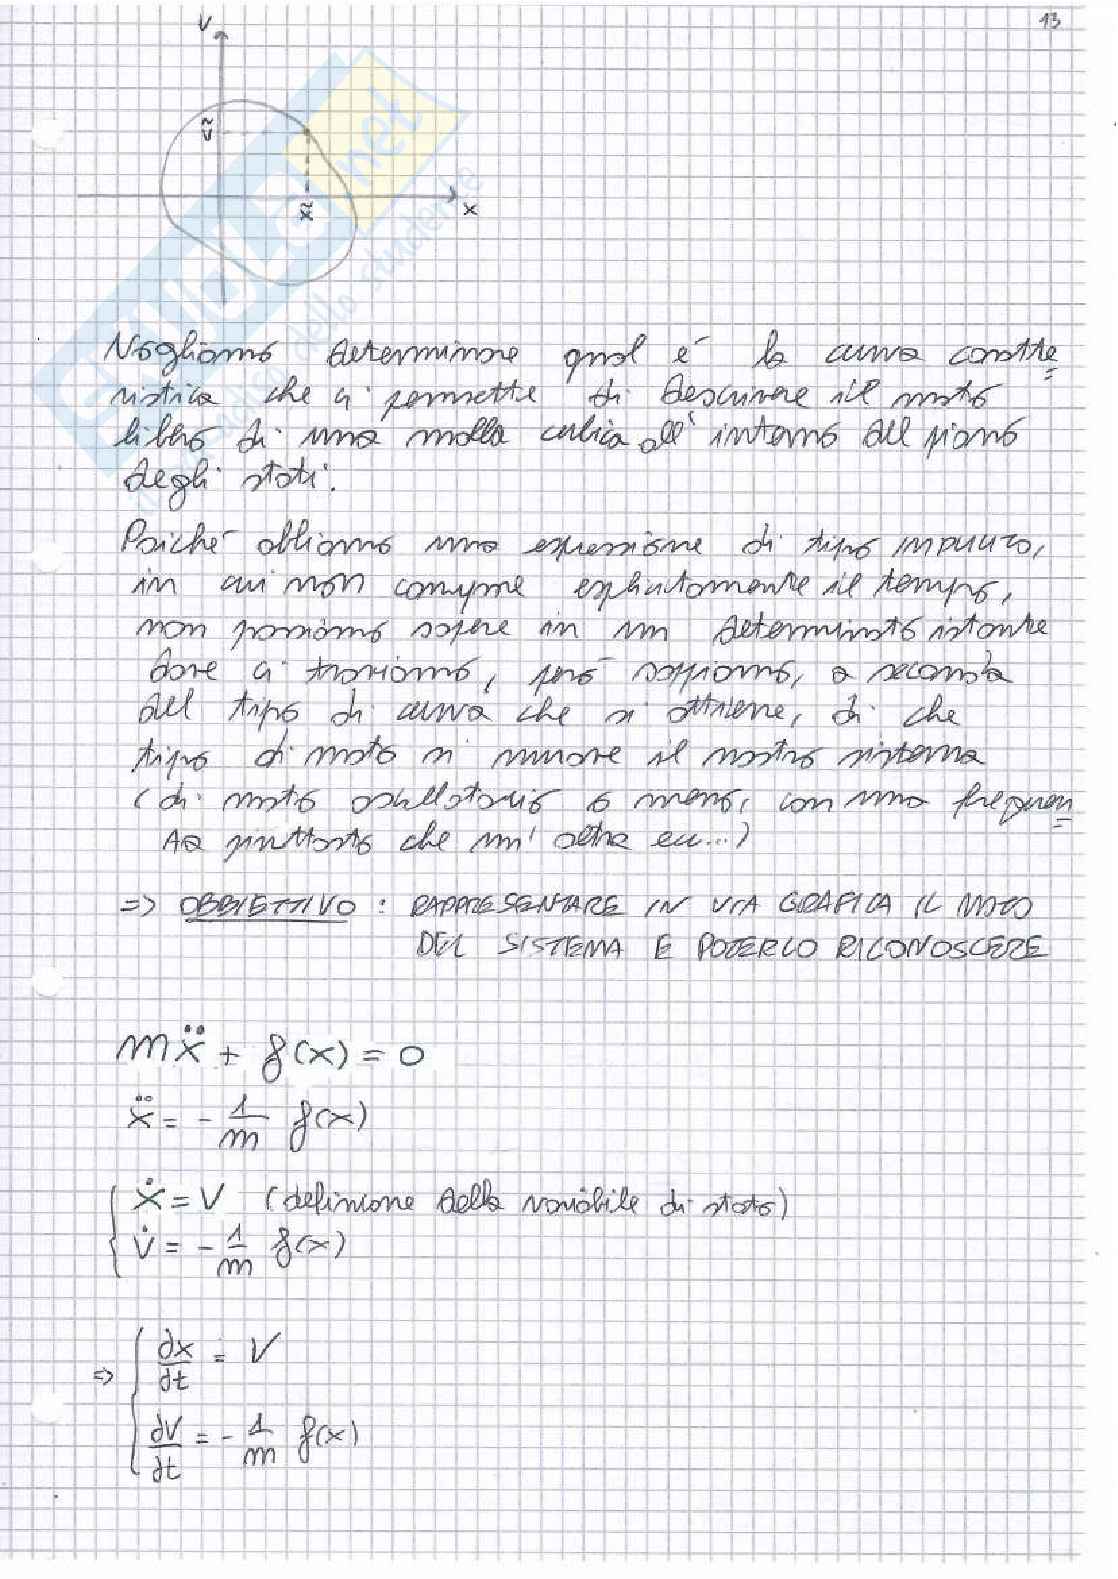 13
V
ṽ
x̃
x
Vogliamo determinare qual è la curva caratte
ristica che ci permette di descrivere il moto
libero di una molla cubica all'interno del piano
degli stati.
Poiché abbiamo una espressione di tipo IMPLICITO,
in cui non compare esplicitamente il tempo,
non possiamo sapere in un determinato istante
dove ci troviamo, però sappiamo, a seconda
del tipo di curva che si ottiene, di che
tipo di moto si muove il nostro sistema
(di moto oscillatorio o meno, con una frequen
za piuttosto che un'altra ecc...)
=> OBBIETTIVO : RAPPRESENTARE IN VIA GRAFICA IL MOTO
DEL SISTEMA E POTERLO RICONOSCERE
mẍ + f(x) = 0
ẍ = - 1/m f(x)
{ ẋ = V (definizione della variabile di stato)
V̇ = - 1/m f(x)
=> { ∂x/∂t = V
∂V/∂t = - 1/m f(x)